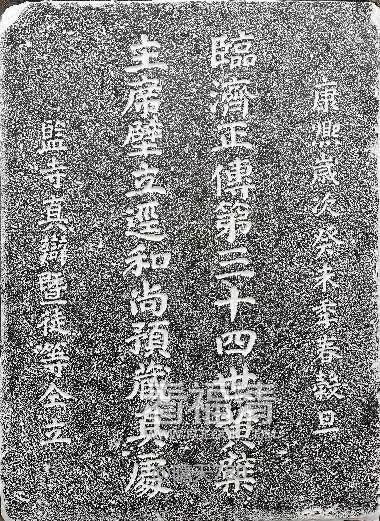 康熙歲次癸未季春穀旦
臨濟正傳第三十四世黃檗
主席壁立逕和尚預藏真處
監寺真辯暨徒等仝立
看福清